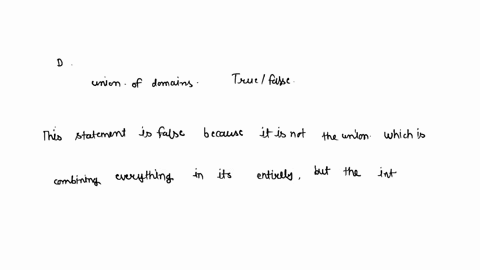 D.
union of domains. True/false
This statement is false because it is not the union which is
combining everything in its entirely, but the int